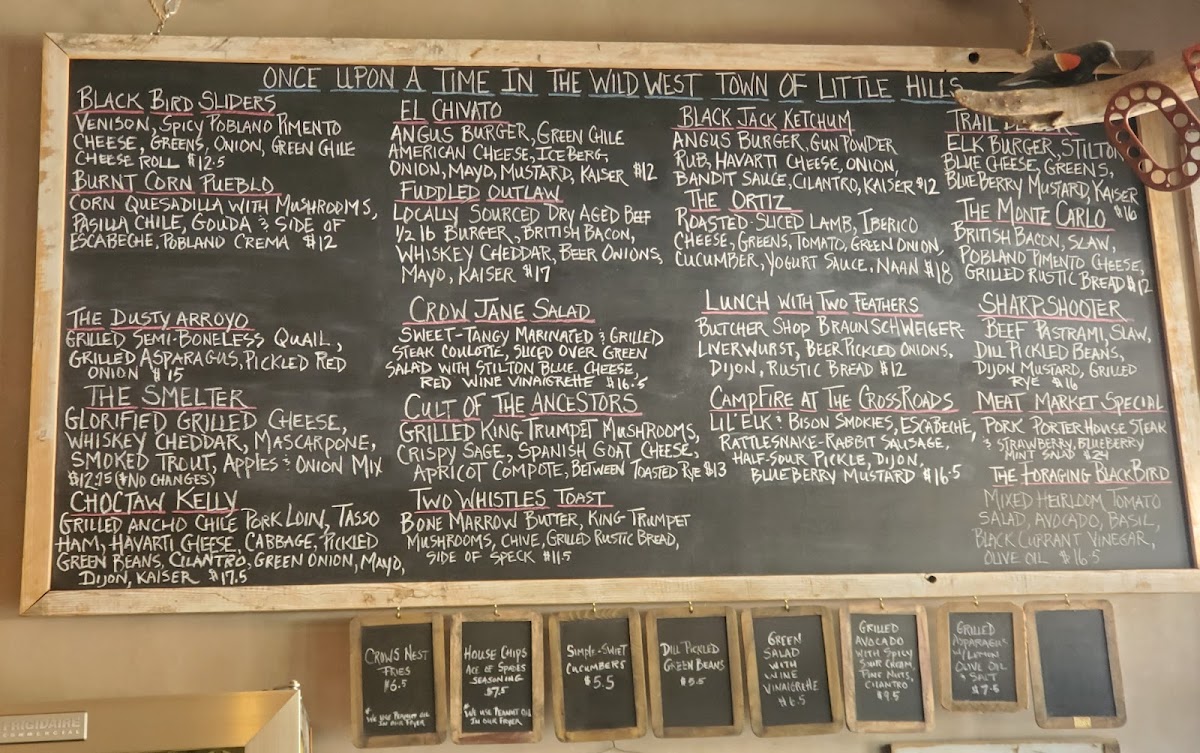 ONCE UPON A TIME IN THE WILD WEST TOWN OF LITTLE HILLS
BLACK BIRD SLIDERS
VENISON, SPICY POBLANO PIMENTO
CHEESE, GREENS, ONION, GREEN CHILE
CHEESE ROLL $12.5
BURNT CORN PUEBLO
CORN QUESADILLA WITH MUSHROOMS,
PASILLA CHILE, GOUDA & SIDE OF
ESCABECHE, POBLANO CREMA $12
THE DUSTY ARROYO
GRILLED SEMI-BONELESS QUAIL,
GRILLED ASPARAGUS, PICKLED RED
ONION $15
THE SMELTER
GLORIFIED GRILLED CHEESE,
WHISKEY CHEDDAR, MASCARPONE,
SMOKED TROUT, APPLES & ONION MIX
$12.75 (NO CHANGES)
CHOCTAW KELLY
GRILLED ANCHO CHILE PORK LOIN, TASSO
HAM, HAVARTI CHEESE, CABBAGE, PICKLED
GREEN BEANS, CILANTRO, GREEN ONION, MAYO,
DIJON, KAISER $17.5
EL CHIVATO
ANGUS BURGER, GREEN CHILE
AMERICAN CHEESE, ICEBERG,
ONION, MAYO, MUSTARD, KAISER $12
FUDDLED OUTLAW
LOCALLY SOURCED DRY AGED BEEF
1/2 lb BURGER, BRITISH BACON,
WHISKEY CHEDDAR, BEER ONIONS,
MAYO, KAISER $17
CROW JANE SALAD
SWEET-TANGY MARINATED & GRILLED
STEAK COULOTTE, SLICED OVER GREEN
SALAD WITH STILTON BLUE CHEESE,
RED WINE VINAIGRETTE $16.5
CULT OF THE ANCESTORS
GRILLED KING TRUMPET MUSHROOMS,
CRISPY SAGE, SPANISH GOAT CHEESE,
APRICOT COMPOTE, BETWEEN TOASTED RYE $13
TWO WHISTLES TOAST
BONE MARROW BUTTER, KING TRUMPET
MUSHROOMS, CHIVE, GRILLED RUSTIC BREAD,
SIDE OF SPECK $11.5
BLACK JACK KETCHUM
ANGUS BURGER, GUN POWDER
RUB, HAVARTI CHEESE, ONION,
BANDIT SAUCE, CILANTRO, KAISER $12
THE ORTIZ
ROASTED-SLICED LAMB, IBERICO
CHEESE, GREENS, TOMATO, GREEN ONION,
CUCUMBER, YOGURT SAUCE, NAAN $18
LUNCH WITH TWO FEATHERS
BUTCHER SHOP BRAUNSCHWEIGER-
LIVERWURST, BEER PICKLED ONIONS,
DIJON, RUSTIC BREAD $12
CAMPFIRE AT THE CROSSROADS
LIL' ELK & BISON SMOKIES, ESCABECHE,
RATTLESNAKE-RABBIT SAUSAGE,
HALF-SOUR PICKLE, DIJON,
BLUEBERRY MUSTARD $16.5
TRAIL
ELK BURGER, STILTON
BLUE CHEESE, GREENS,
BLUEBERRY MUSTARD, KAISER
$16
THE MONTE CARLO
BRITISH BACON, SLAW,
POBLANO PIMENTO CHEESE,
GRILLED RUSTIC BREAD $12
SHARPSHOOTER
BEEF PASTRAMI, SLAW,
DILL PICKLED BEANS,
DIJON MUSTARD, GRILLED
RYE $16
MEAT MARKET SPECIAL
PORK PORTERHOUSE STEAK
& STRAWBERRY, BLUEBERRY
MINT SALAD $24
THE FORAGING BLACKBIRD
MIXED HEIRLOOM TOMATO
SALAD, AVOCADO, BASIL,
BLACK CURRANT VINEGAR,
OLIVE OIL $16.5
CROWS NEST
FRIES
$6.5
* WE USE PEANUT OIL
IN OUR FRYER
HOUSE CHIPS
ACE OF SPADES
SEASONING
$7.5
* WE USE PEANUT OIL
IN OUR FRYER
SIMPLE-SWEET
CUCUMBERS
$5.5
DILL PICKLED
GREEN BEANS
$5.5
GREEN
SALAD
WITH
WINE
VINAIGRETTE
$6.5
GRILLED
AVOCADO
WITH SPICY
SOUR CREAM,
PINE NUTS,
CILANTRO
$9.5
GRILLED
ASPARAGUS
W/ LEMON
OLIVE OIL
& SALT
$7.5
FRIGIDAIRE
COMMERCIAL